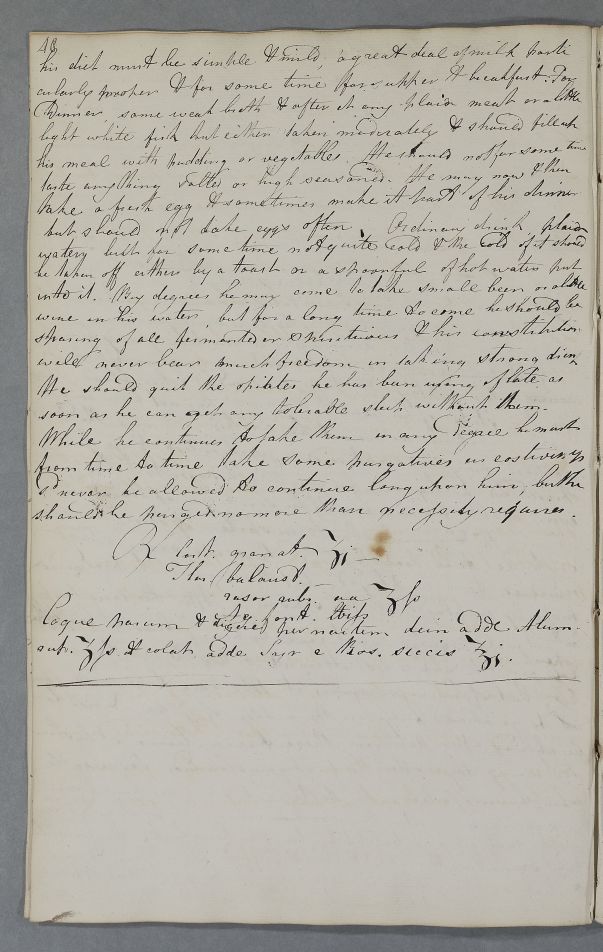 48
his diet must be simple & mild, a great deal of milk parti
cularly proper & for some time for supper & breakfast. For
Dinner, some weak broth & after it any plain meat or a little
light white fish but either taken moderately & should fill up
his meal with pudding or vegetables. He should not for some time
taste anything salted or high seasoned. He may now & then
take a fresh egg & sometimes make it part of his dinner
but should not take eggs often. Ordinary drink, plain
watery but for some time not quite cold & the cold of it should
be taken off either by a toast or a spoonful of hot water put
into it. By degrees he may come to take small beer or a little
wine in his water, but for a long time to come he should be
sparing of all fermented or spirituous & his constitution
will never bear much freedom in taking strong drin
He should quit the opiates he has been using of late as
soon as he can get any tolerable sleep without them.
While he continues to take them in any degree, he must
from time to time take some purgatives as costiveness
sd never be allowed to continue long upon him, but he
should be purged no more than necessity requires.
℞ Cort. granat. ʒi
Flor. balaust.
rosar. rubr. aa ʒſs
Aq. font. ℔iſs
Coque parum & digere per noctem dein adde Alum.
rub. ʒſs & colat. adde Syr e Ros. siccis ℥i.